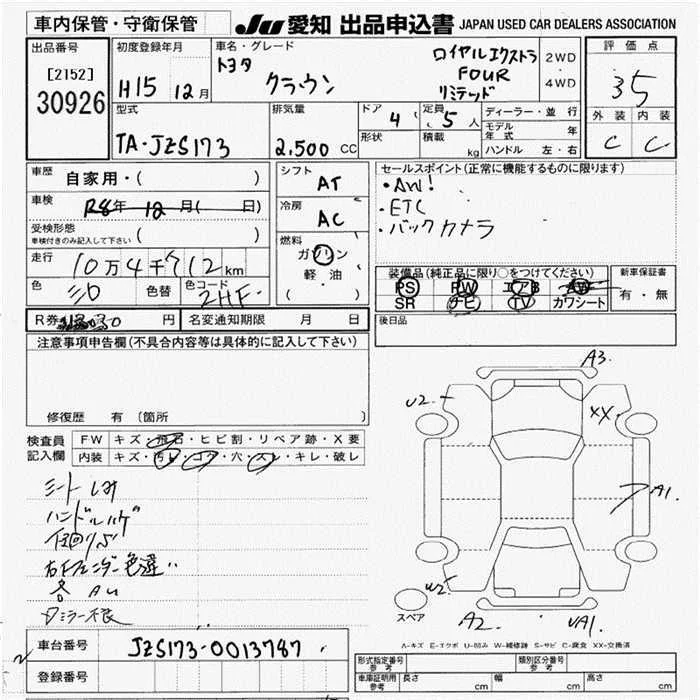 車内保管・守衛保管
JU 愛知 出品申込書 JAPAN USED CAR DEALERS ASSOCIATION
出品番号
[2152]
30926
初度登録年月
H15 12月
車名・グレード
トヨタ
クラウン
ロイヤルエクストラ
FOUR
リミテッド
2WD
4WD
評価点
3.5
外装 内装
C C
型式
TA-JZS173
排気量
2.500 CC
ドア
4
形状
定員
5人
積載
kg
ディーラー・並行
モデル年式 年
ハンドル 左・右
車歴
自家用・( )
車検
R8年 12月( 日)
受検形態
車検付きのみ記入して下さい ( )
走行
10万4千712km
色
色替
色コード
2HF
シフト
AT
冷房
AC
燃料
ガソリン
軽・油
( )
セールスポイント(正常に機能するものに限ります)
・ETC
・バックカメラ
装備品(純正品に限り○をつけてください)
PS PW エアB
SR ナビ TV カワシート
新車保証書
有・無
後日品
R券 円
名変通知期限 月 日
注意事項申告欄(不具合内容等は具体的に記入して下さい)
修復歴 有 (箇所
検査員
記入欄
FW キズ・飛石・ヒビ割・リペア跡・X要
内装 キズ・汚レ・コゲ・穴・スレ・キレ・破レ
シート しみ
ハンドルハゲ
右Fフェンダー色違い
各 AU
A3
U2
XX
A1
W2
A2
UA1
スペア
A-キズ E-エクボ U-凹み W-補修跡 S-サビ C-腐食 XX-交換済
車台番号 JZS173-0013787
登録番号
形式指定番号
参考
類別区分番号
参考
車庫証明用
参考
長さ cm 幅 cm 高さ cm